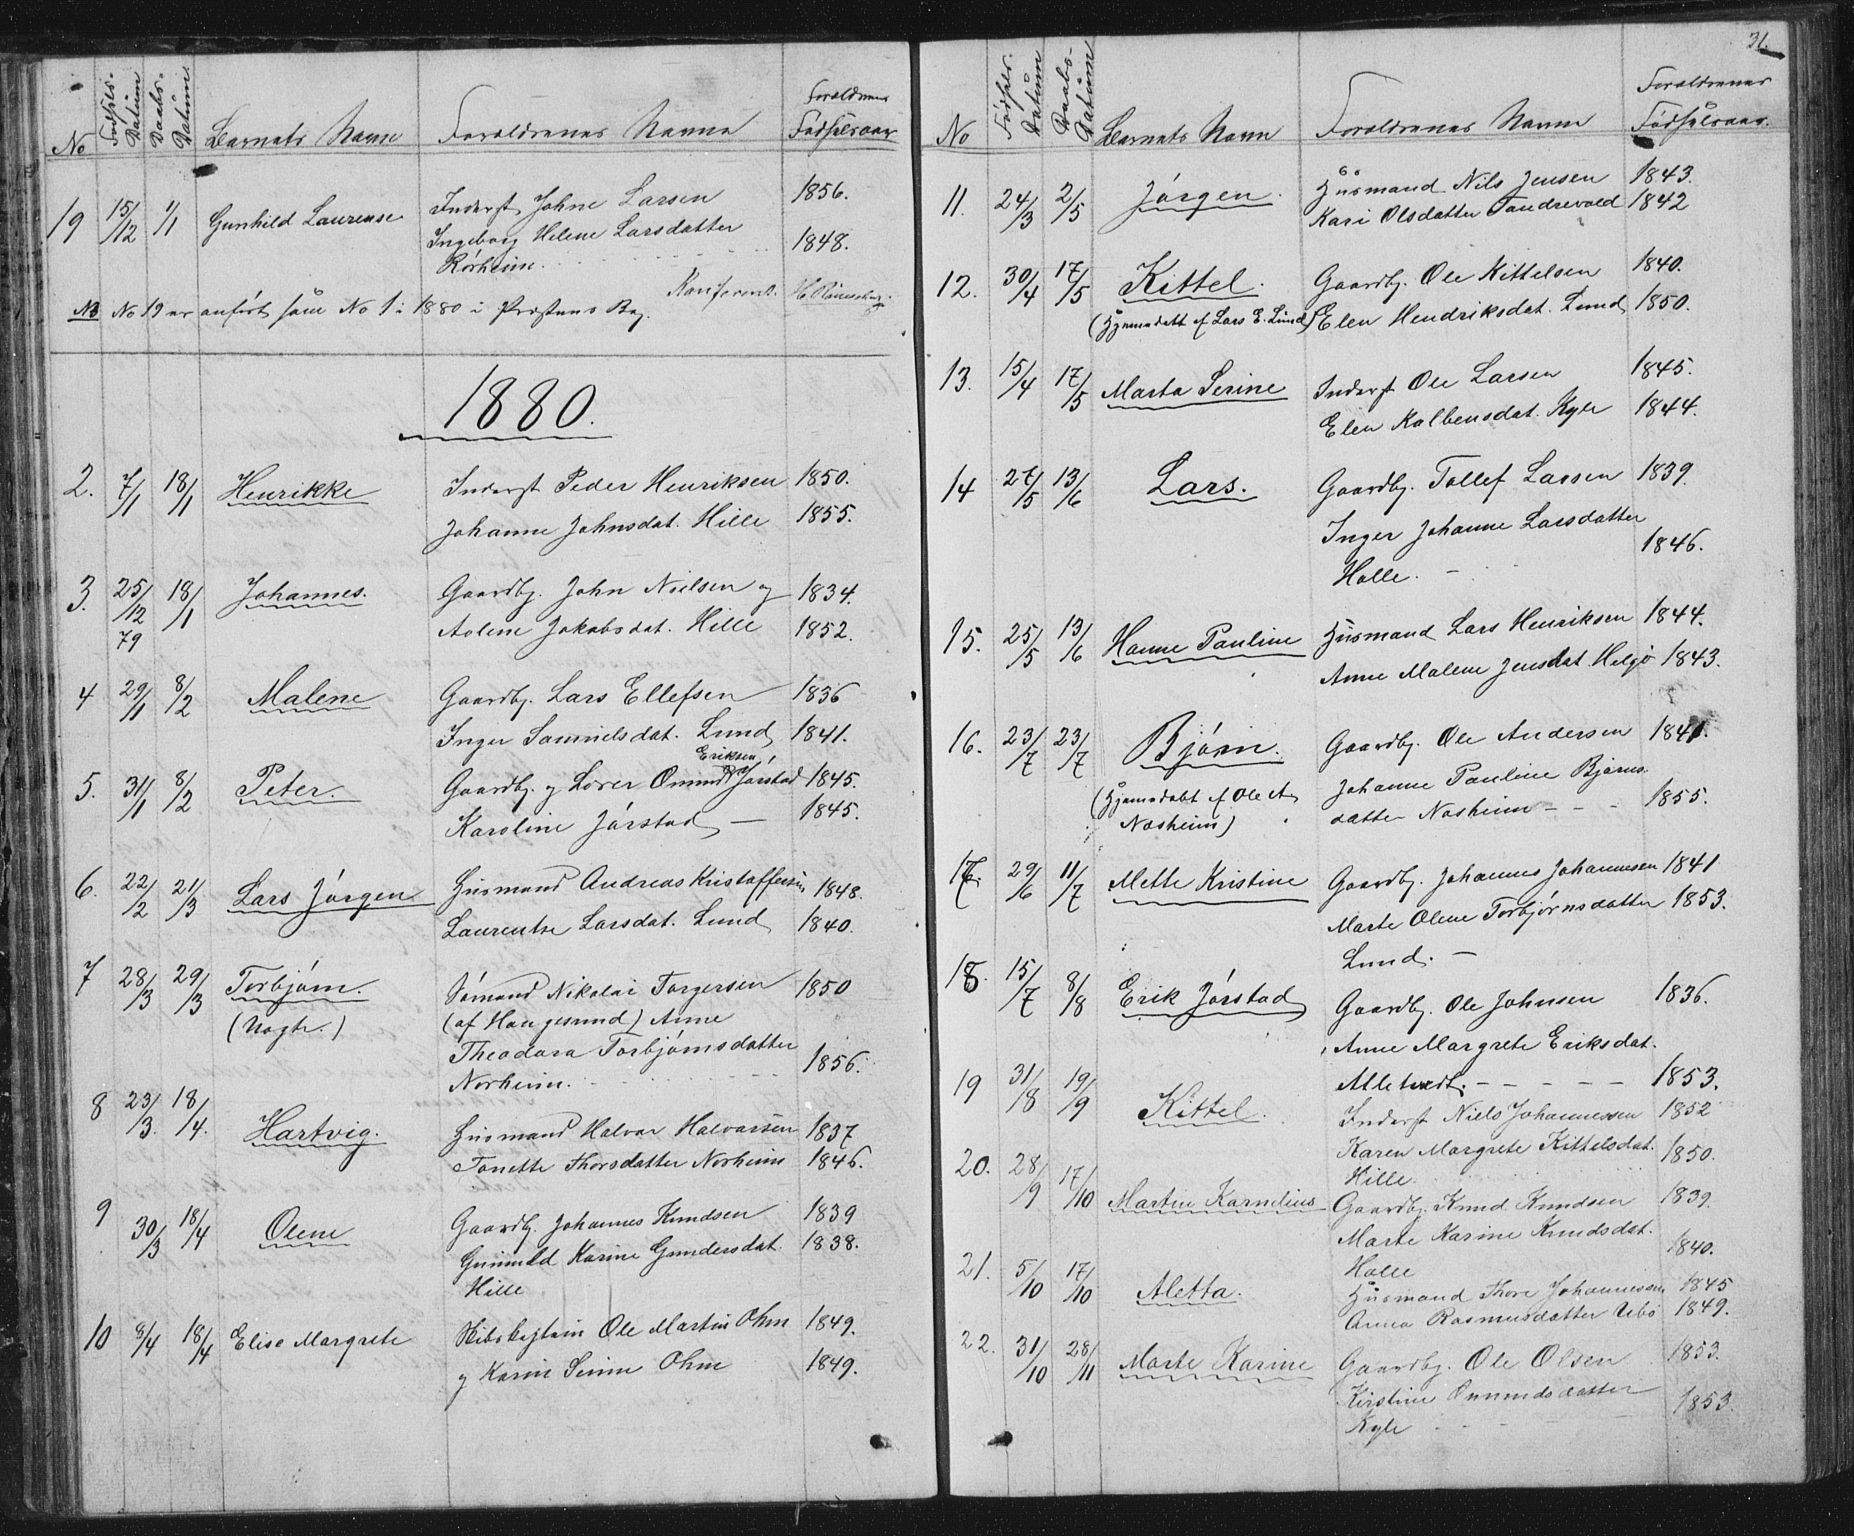 No Fødsels-Datum Daabs-Datum Barnets Navne Forældrenes Navne Forældrenes Fødselsaar
19 15/12 1/1 Gunhild Laurense Inderst Johne Larsen 1856.
Ingeborg Helene Larsdatter 1848.
Rørheim.
Konfereret.
NB No 19 er anført som No 1 i 1880 i Præstens Bog.
1880.
2. 7/1 18/1 Henrikke Inderst Peder Henriksen 1850.
Johanne Johnsdat. Hille 1855.
3. 25/12 79 18/1 Johannes. Gaardbr. John Nielsen og 1834.
Aolene Jakobsdat. Hille 1852.
4 29/1 8/2 Malene Gaardbr. Lars Ellefsen 1836
Inger Samuelsdat. Lund 1841.
Eriksen
5. 31/1 8/2 Peter. Gaardbr. og Lærer Omund Jørstad 1845.
Karoline Jørstad — 1845.
6. 22/2 21/3 Lars Jørgen Husmand Andreas Kristoffersen 1848.
Laurentse Larsdat. Lund 1840.
7 28/3 29/3 Torbjørn. Sømand Nikolai Torgersen 1850
(Uægte.) (af Haugesund) Anne
Theodora Torbjørnsdatter
Norheim. 1856.
8 23/3. 18/4. Hartvig. Husmand Halvar Halvarsen 1837
Tonette Thorsdatter Norheim 1846.
9 30/3 18/4 Olene Gaardbr. Johannes Knudsen 1839
Gunnild Karine Gundersdat. 1838.
Hille
10 8/4 18/4 Elise Margrete Skibskaptein Ole Martin Ohm 1849.
og Karin Serine Ohm 1849.
31.
No Fødsels-Datum Daabs-Datum Barnets Navn Forældrenes Navne Forældrenes Fødselsaar.
11. 24/3 2/5 Jørgen. Husmand Nils Jensen 1843.
Kari Olsdatter Tandrevold 1842
12. 30/4 17/5 Kittel. Gaardbr. Ole Kittelsen 1840.
(Hjemmedøbt af Lars E. Lund) Elen Hendriksdat. Lund 1850.
13. 15/4 17/5 Marta Serine Inderst Ole Larsen 1845.
Elen Kalbensdat. Kyle 1844.
14 27/5 13/6 Lars. Gaardbr. Tollef Larsen 1839.
Inger Johanne Larsdatter
1846.
Halle.
15. 25/5 13/6 Hanne Pauline Husmand Lars Henriksen 1844.
Anne Malene Jensdat Helgø 1843.
16. 23/7 23/7 Bjørn. Gaardbr. Ole Andersen 1841.
(Hjemmedøbt af Ole A. Johanne Pauline Bjørns-
Nosheim) datter Nosheim – – – 1855.
17. 29/6 11/7 Mette Kristine Gaardbr. Johannes Johannesen 1841
Marte Olene Torbjørnsdatter 1853.
Lund. –
18. 15/7 8/8 Erik Jørstad Gaardbr. Ole Johnsen 1836.
Anne Margrete Eriksdat.
Alletvedt. – – – – – 1853.
19 31/8 19/9 Kittel. Inderst Niels Johannessen 1852
Karen Margrete Kittelsdat. 1850.
Hille.
20. 28/9 17/10 Martin Karnelius Gaardbr. Knud Knudsen 1839.
Marte Karine Knudsdat. 1840.
Halle
21. 5/10 17/10 Aletta. Husmand Thore Johannessen 1845
Anna Rasmusdatter Ubø 1849.
22. 31/10 28/11 Marte Karine Gaardbr. Ole Olsen 1853.
Kirstine Omundsdatter 1853.
Kyle